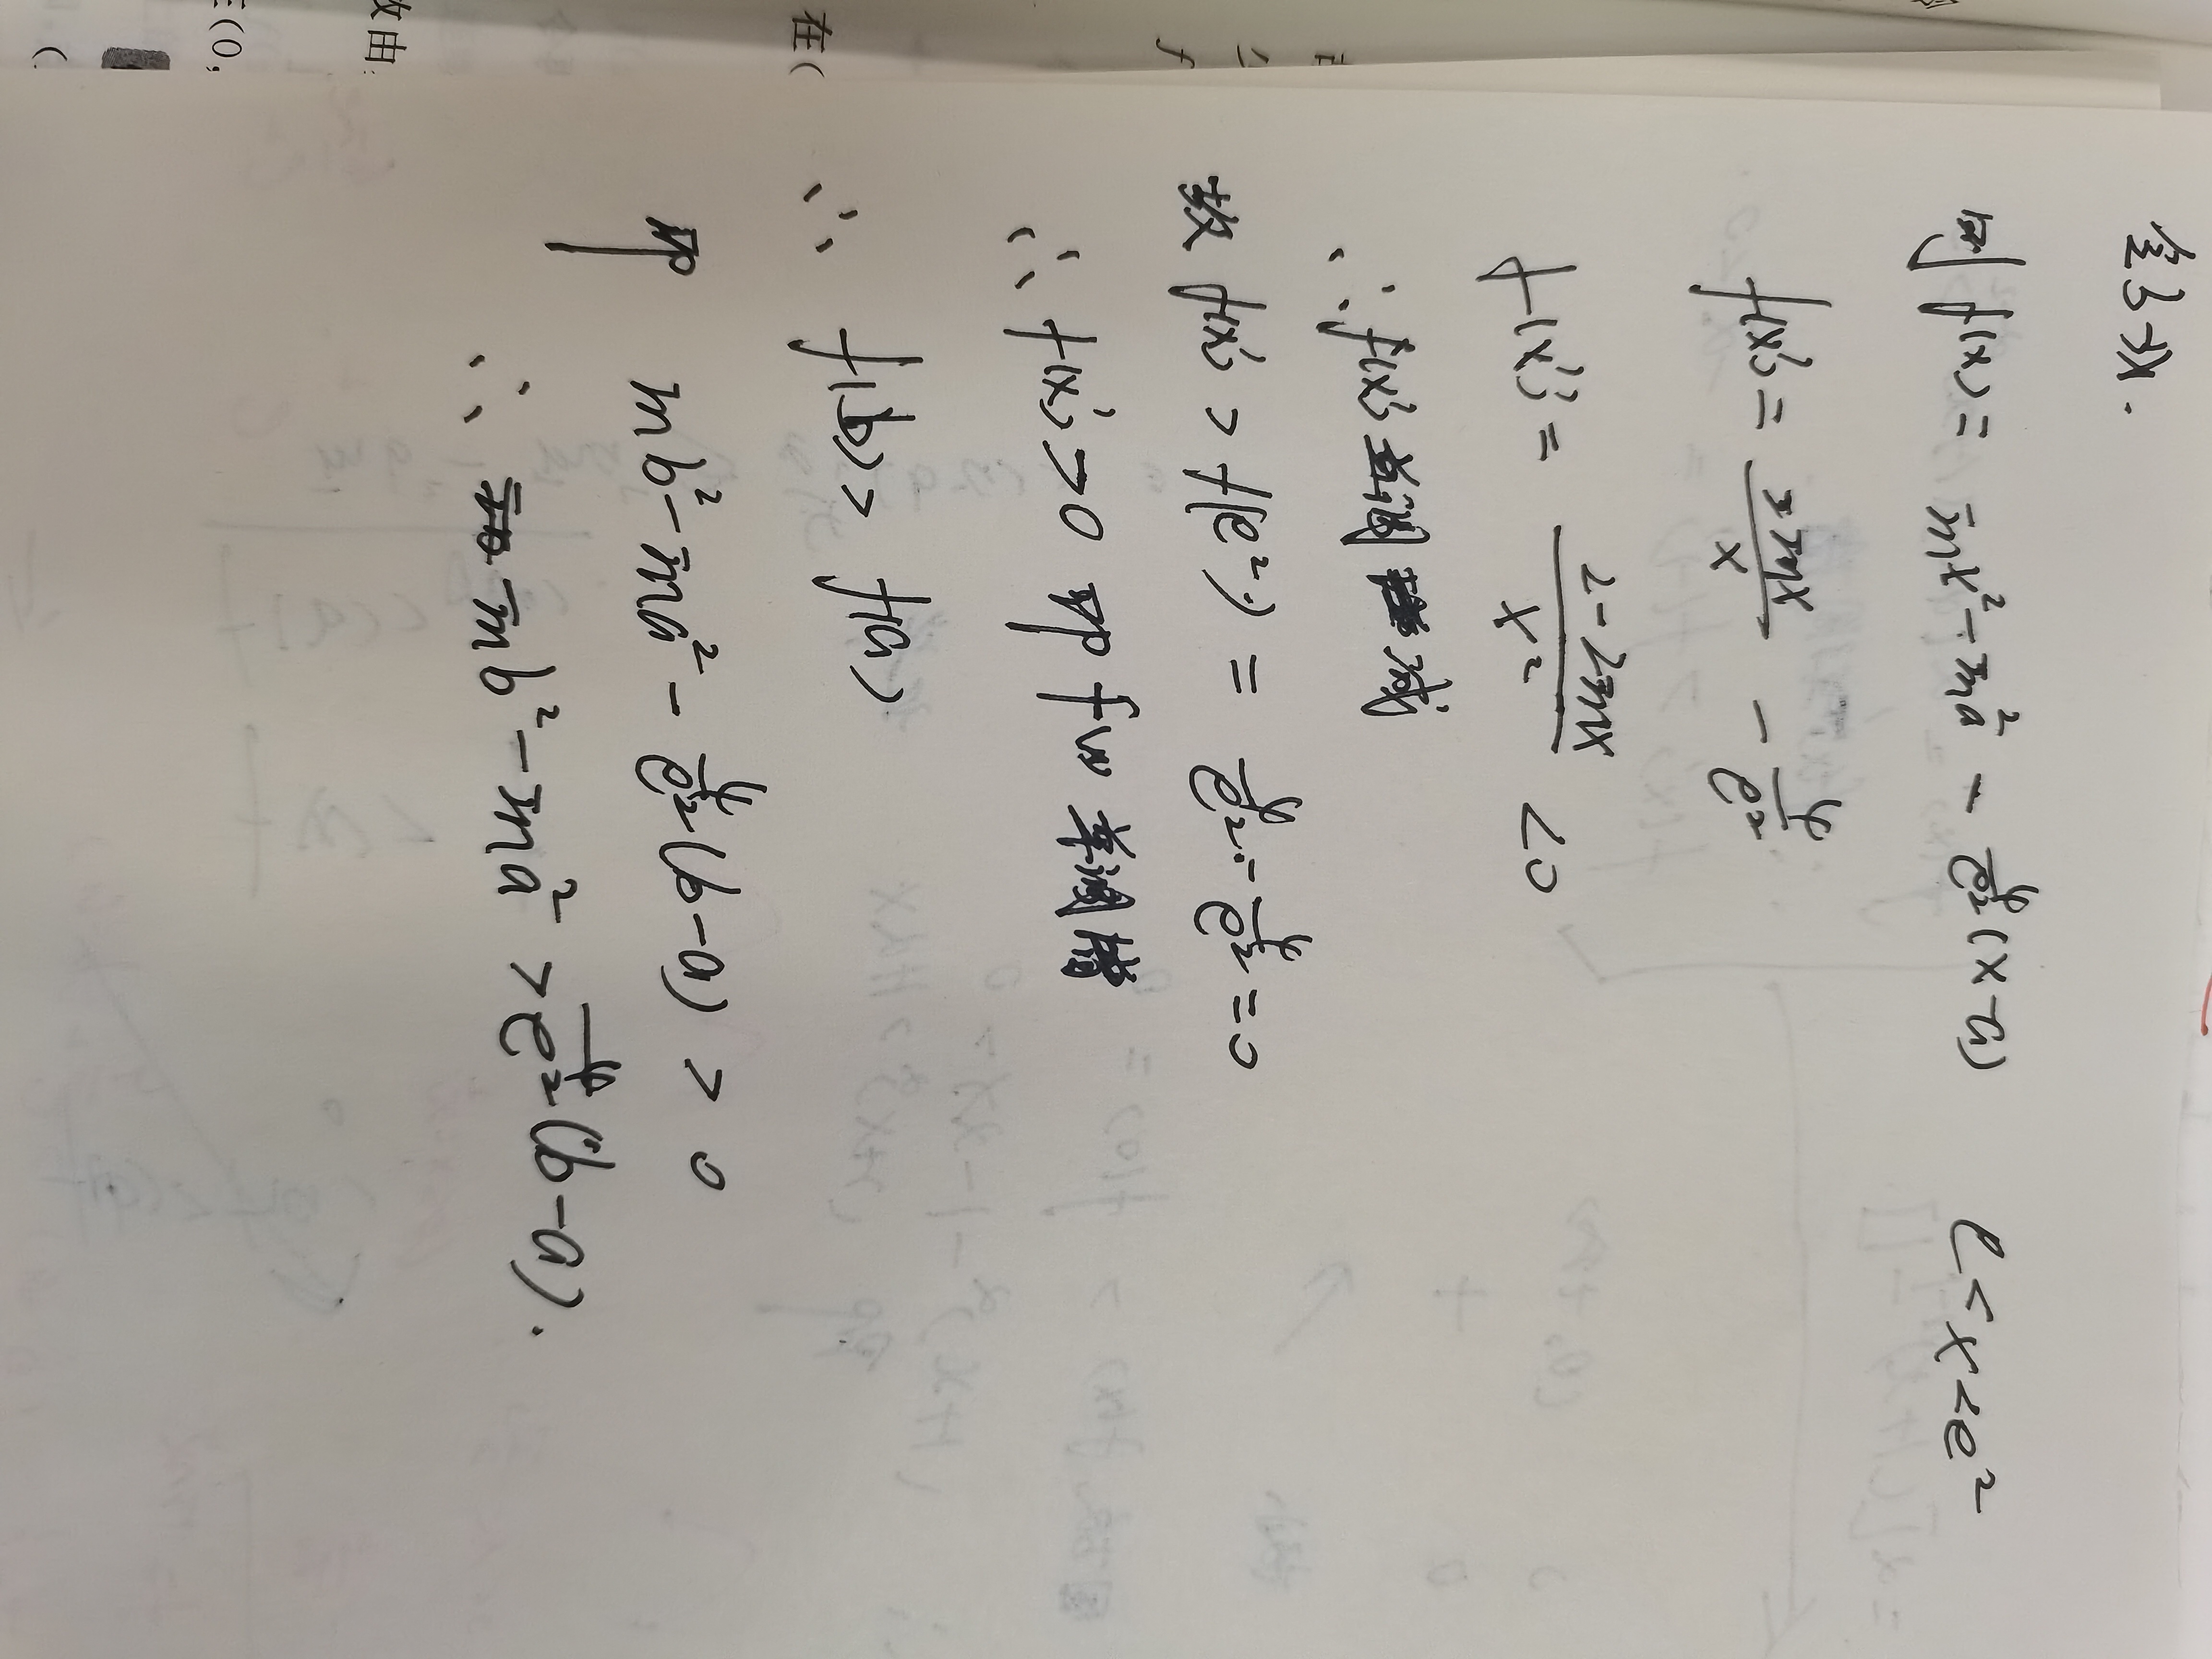 全部取.
则 f(x) = ln x² - ln a² - 4/e² (x-a)    e<x<e²
f'(x) = 2lnx/x - 4/e²
f''(x) = 2-2lnx/x² <0
∴ f'(x) 单调减
故 f'(x) > f'(e²) = 4/e² - 4/e² = 0
∴ f'(x) > 0 即 f(x) 单调增
∴ f(b) > f(a)
即 ln b² - ln a² - 4/e² (b-a) > 0
∴ ln b² - ln a² > 4/e² (b-a).
在(
故由:
(0,